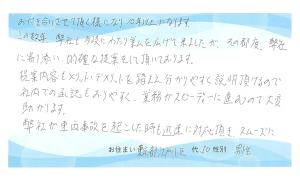 お付き合いさせて頂く様になり10年以上になります。
この数年、弊社も多岐にわたり業務を広げて来ましたが、その都度、弊社
に寄り添い、的確な提案をして頂いております。
提案内容もメリット・デメリットを踏まえ分かりやすく説明頂けるので
社内での承認もおりやすく、業務がスピーディーに進むので大変
助かります。
弊社が車両事故を起こした時も迅速に対応頂き、スムーズに
お住まい 東京都江戸川区 代 50 性別 男性